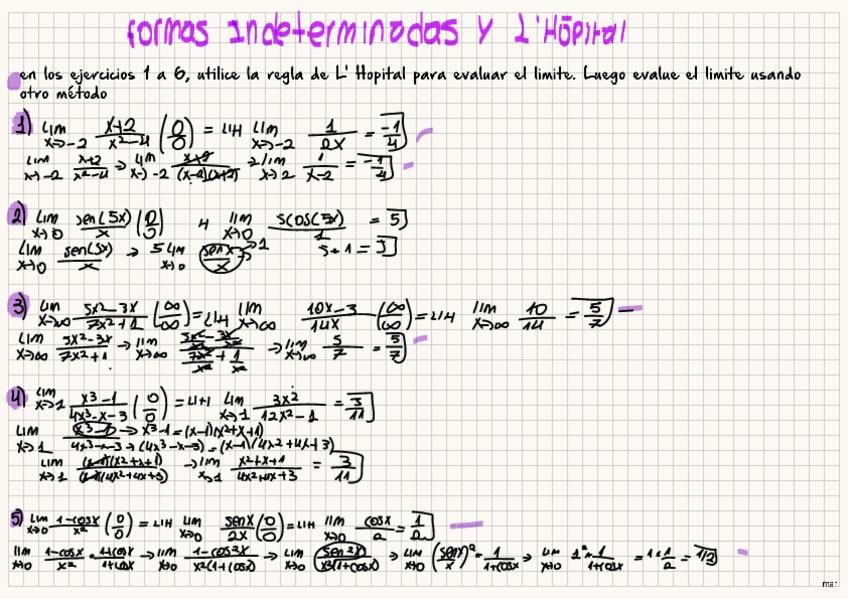 Formas Indeterminadas y L'Hôpital
en los ejercicios 1 a 6, utilice la regla de L' Hopital para evaluar el limite. Luego evalue el limite usando
otro método
1) lim x→-2 x+2/x²-4 (0/0) = LH lim x→-2 1/2x = -1/4
lim x→-2 x+2/x²-4 → lim x→-2 x+2/(x-2)(x+2) → lim x→2 1/x-2 = -1/4
2) lim x→0 sen(5x)/x (0/0) H lim x→0 5cos(5x)/1 = 5
lim x→0 sen(5x)/x → 5 lim x→0 5·1 = 5
3) lim x→∞ 5x²-3x/7x²+1 (∞/∞) = LH lim x→∞ 10x-3/14x (∞/∞) = LH lim x→∞ 10/14 = 5/7
lim x→∞ 5x²-3x/7x²+1 → lim x→∞ → lim x→∞ 5/7 = 5/7
4) lim x→1 x³-1/4x³-x-3 (0/0) = LH lim x→1 3x²/12x²-1 = 3/11
lim x→1 x³-1 → x³-1 = (x-1)(x²+x+1)
4x³-x-3 → (4x³-x-3) = (x-1)(4x²+4x+3)
lim x→1 (x-1)(x²+x+1)/(x-1)(4x²+4x+3) → lim x→1 x²+x+1/4x²+4x+3 = 3/11
5) lim x→0 1-cosx/x² (0/0) = LH lim x→0 senx/2x (0/0) = LH lim x→0 cosx/2 = 1/2
lim x→0 1-cosx/x² · 1+cosx/1+cosx → lim x→0 1-cos²x/x²(1+cosx) → lim x→0 sen²x/x²(1+cosx) → lim x→0 (senx/x)² · 1/1+cosx → lim x→0 1² · 1/1+cosx = 1·1/2 = 1/2
mar